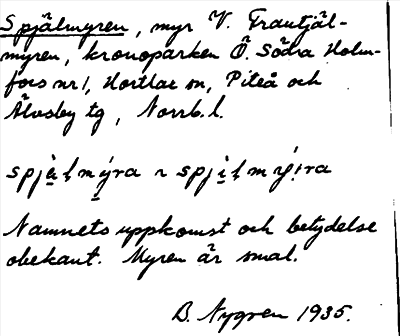 Spjälmyren, myr V. Trautjäl-
myren, kronoparken Ö. Södra Holm-
fors nr 1, Hortlax sn, Piteå och
Älvsby tg, Norrb. l.
Namnets uppkomst och betydelse
obekant. Myren är smal.
B. Nygren 1935.